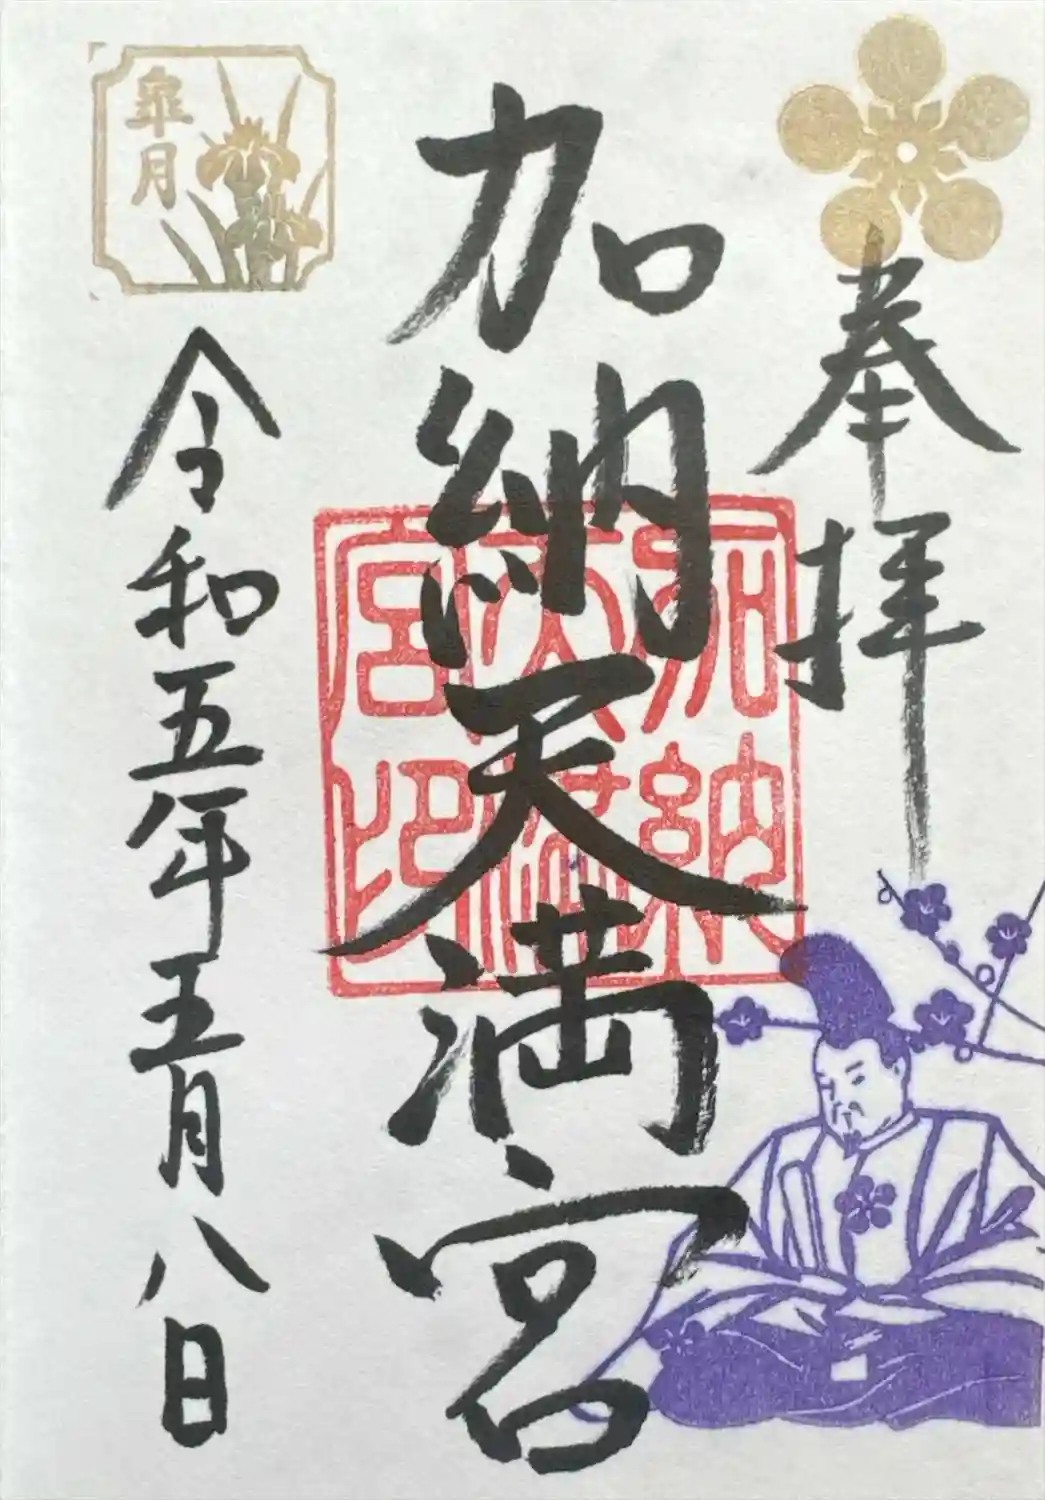 奉拝
加納天満宮
加納
天満
宮印
皐月
令和五年五月八日